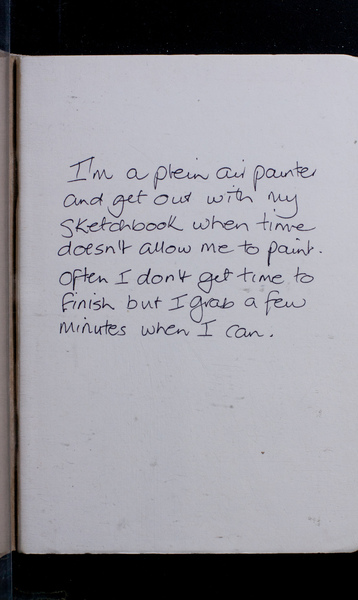 I'm a plein air painter
and get out with my
sketchbook when time
doesn't allow me to paint.
Often I don't get time to
finish but I grab a few
minutes when I can.